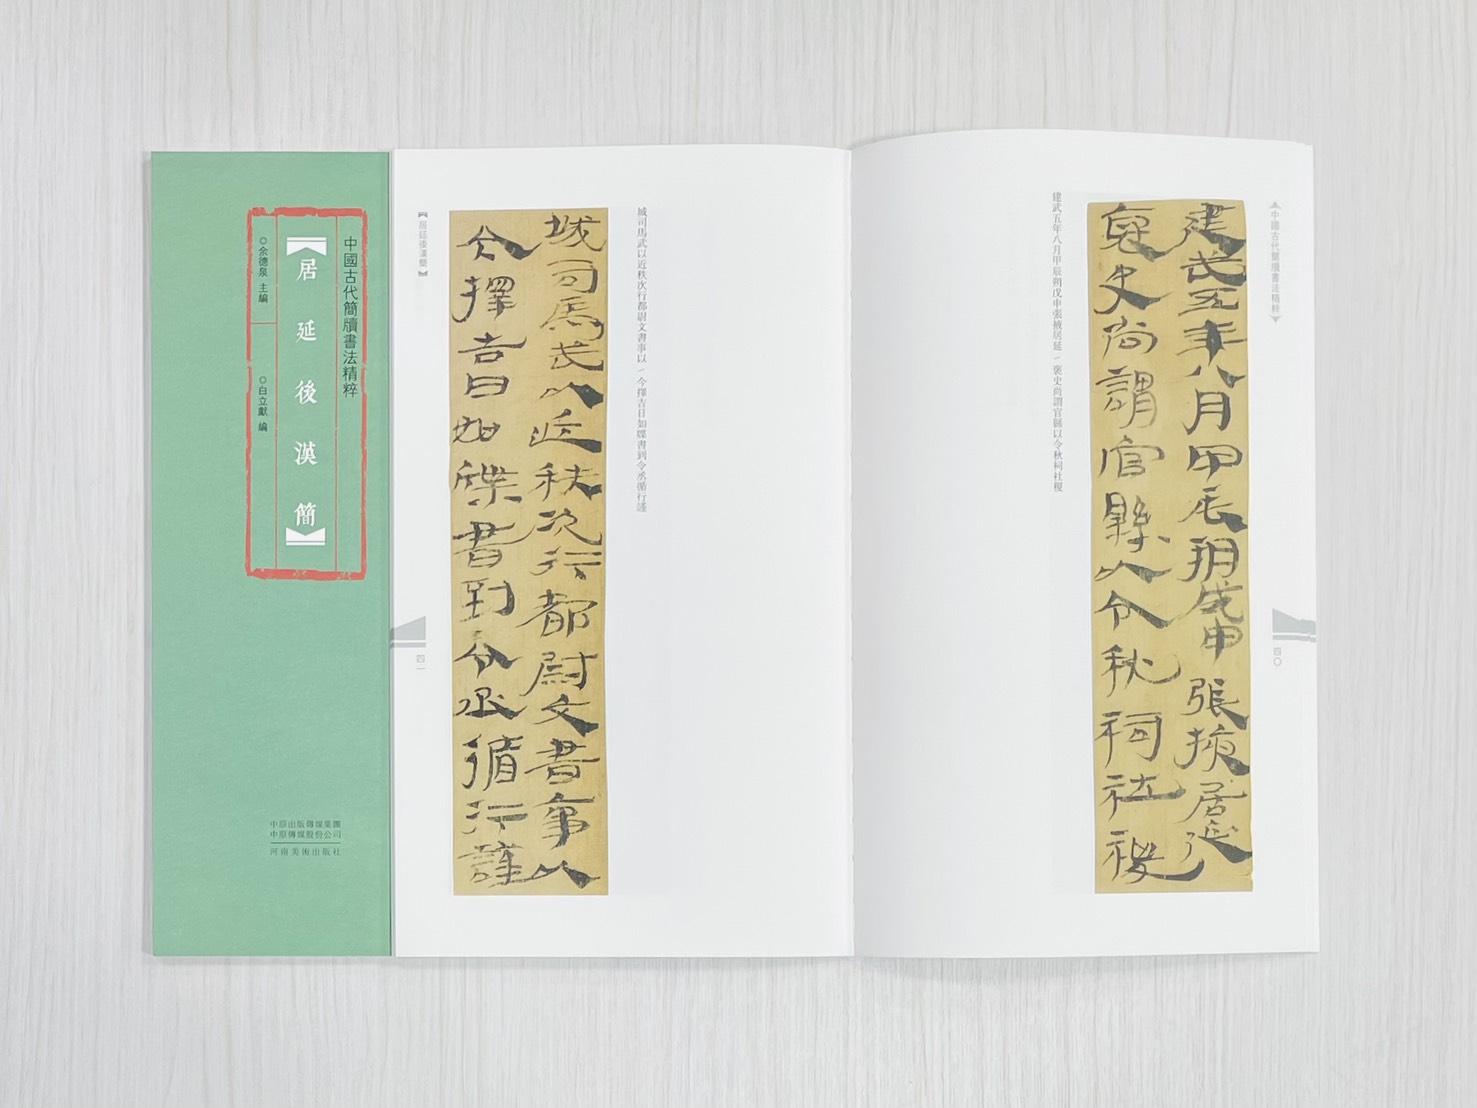 中國古代簡牘書法精粹
【居延後漢簡】
◎余德泉 主編
◎白立獻 編
中原出版傳媒集團
中原傳媒股份公司
河南美術出版社
中國古代簡牘書法精粹
四〇
建武五年八月甲辰朔戊申張掖居延
史尚謂官縣以令秋祠社稷
建武五年八月甲辰朔戊申張掖居延／裒史尚謂官縣以令秋祠社稷
城司馬武以近秩次行都尉文書事以／今擇吉日如牒書到令丞循行謹
城司馬武以近秩次行都尉文書事以
今擇吉日如牒書到令丞循行謹
【居延後漢簡】
四一